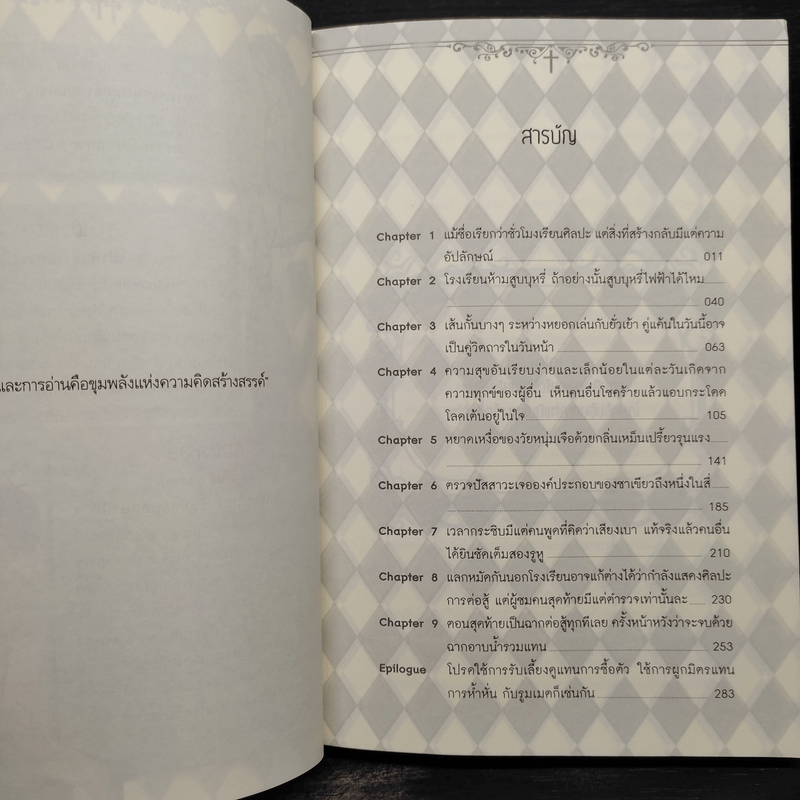 และการอ่านคือขุมพลังแห่งความคิดสร้างสรรค์"
สารบัญ
Chapter 1 แม้ชื่อเรียกว่าชั่วโมงเรียนศิลปะ แต่สิ่งที่สร้างกลับมีแต่ความ
อัปลักษณ์ 011
Chapter 2 โรงเรียนห้ามสูบบุหรี่ ถ้าอย่างนั้นสูบบุหรี่ไฟฟ้าได้ไหม
040
Chapter 3 เส้นกั้นบางๆ ระหว่างหยอกเล่นกับยั่วเย้า คู่แค้นในวันนี้อาจ
เป็นคู่วิตถารในวันหน้า 063
Chapter 4 ความสุขอันเรียบง่ายและเล็กน้อยในแต่ละวันเกิดจาก
ความทุกข์ของผู้อื่น เห็นคนอื่นโชคร้ายแล้วแอบกระโดด
โลดเต้นอยู่ในใจ 105
Chapter 5 หยาดเหงื่อของวัยหนุ่มเจือด้วยกลิ่นเหม็นเปรี้ยวรุนแรง
141
Chapter 6 ตรวจปัสสาวะเจอองค์ประกอบของชาเขียวถึงหนึ่งในสี่
185
Chapter 7 เวลากระซิบมีแต่คนพูดที่คิดว่าเสียงเบา แท้จริงแล้วคนอื่น
ได้ยินชัดเต็มสองรูหู 210
Chapter 8 แลกหมัดกันนอกโรงเรียนอาจแก้ต่างได้ว่ากำลังแสดงศิลปะ
การต่อสู้ แต่ผู้ชมคนสุดท้ายมีแต่ตำรวจเท่านั้นละ 230
Chapter 9 ตอนสุดท้ายเป็นฉากต่อสู้ทุกทีเลย ครั้งหน้าหวังว่าจะจบด้วย
ฉากอาบน้ำรวมแทน 253
Epilogue โปรดใช้การรับเลี้ยงดูแทนการซื้อตัว ใช้การผูกมิตรแทน
การห้ำหั่น กับรูมเมตก็เช่นกัน 283